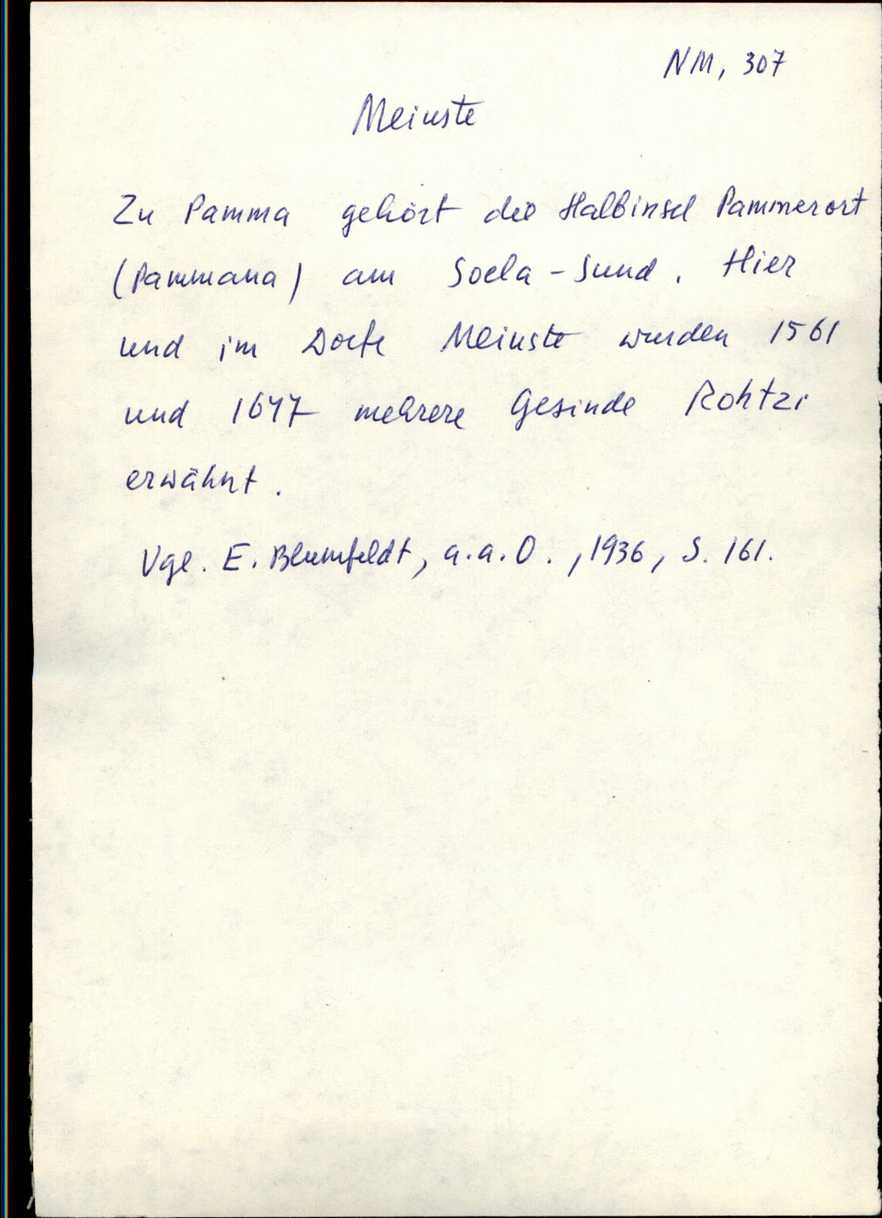 NM, 307
Meinste
Zu Pamma gehört die Halbinsel Pammerort
(Pammana) am Soela-Sund. Hier
und im Dorfe Meinste wurden 1561
und 1647 mehrere Gesinde Rohtzi
erwähnt.
Vgl. E. Blumfeldt, a.a.O., 1936, S. 161.